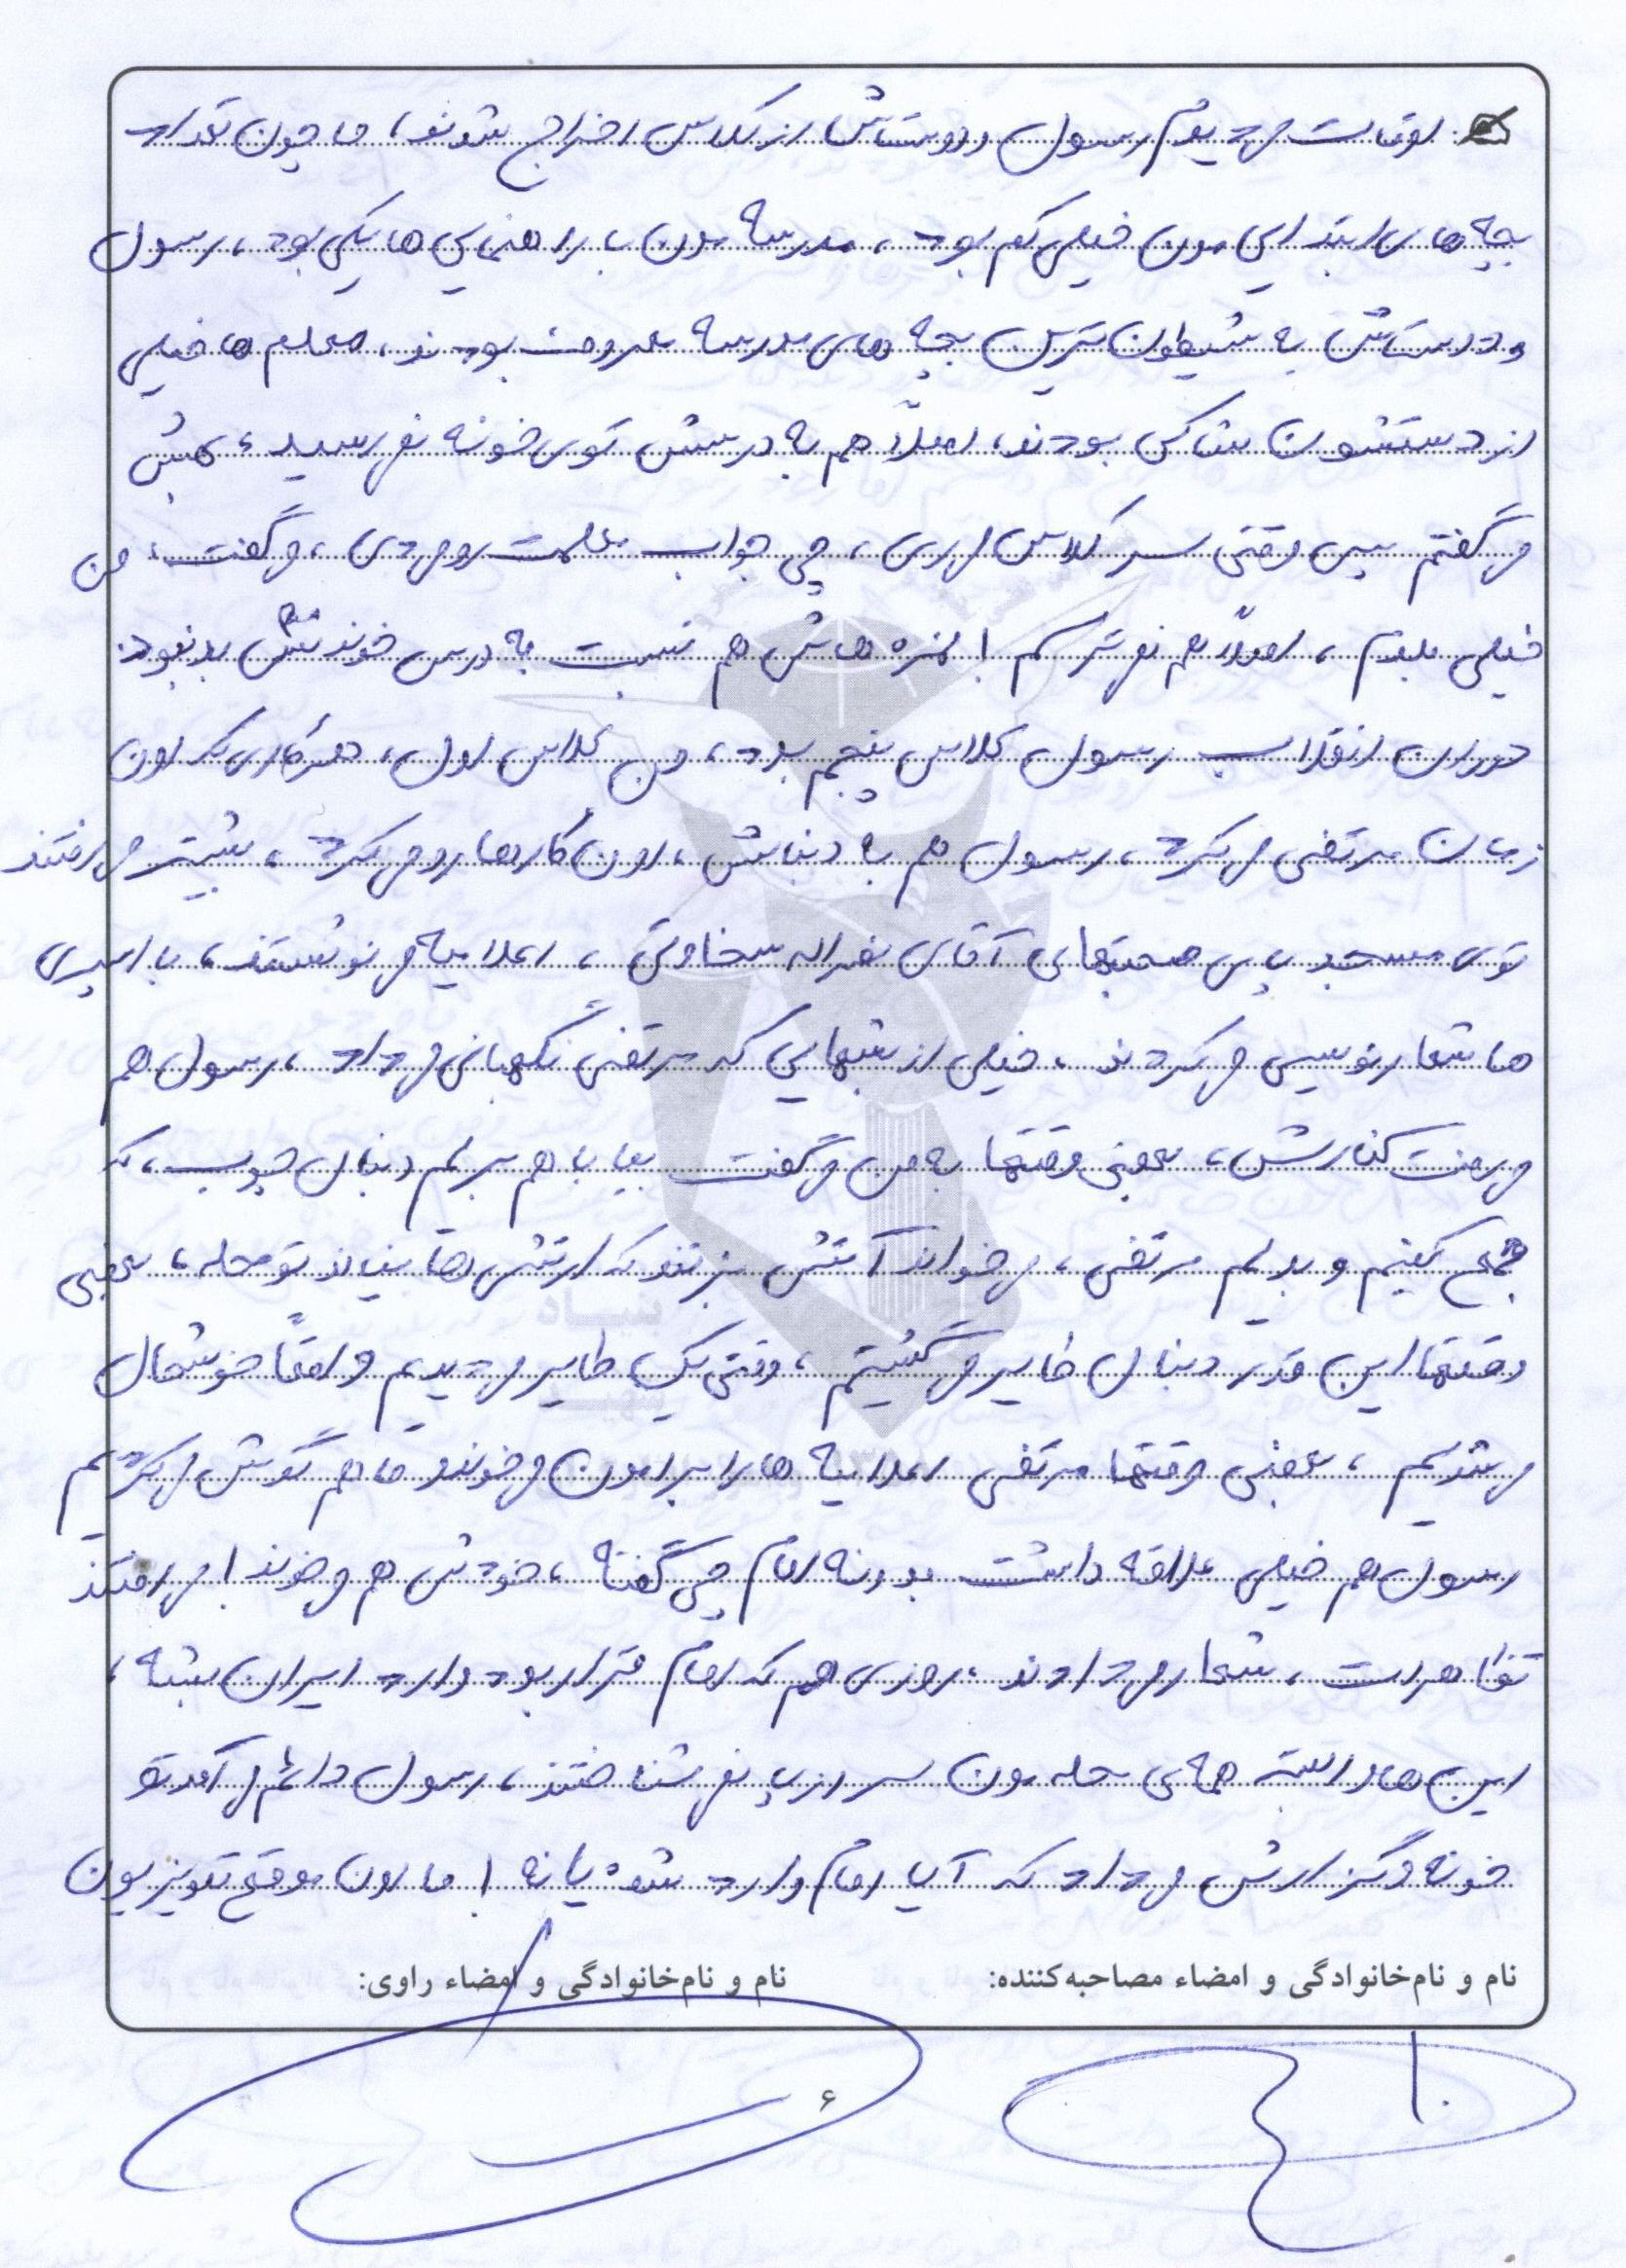 اوقات می دیدم رسول و دوستاش از کلاس اخراج شدند، ما چون تعداد
بچه های ابتدایی مون خیلی کم بود، مدرسه مون با راهنمایی ها یکی بود، رسول
و دوستاش به شیطون ترین بچه های مدرسه معروف بودند، معلم ها خیلی
از دستشون شاکی بودند، اصلاً هم به درسش توی خونه نمی رسید، بهش
می گفتم پس وقتی سر کلاس می ری، چی جواب معلمت رو می دی، می گفت: من
خیلی بلدم، اصلاً هم نمی ترسم! نمره هاش هم نسبت به درس خوندنش بد نبود.
دوران انقلاب رسول کلاس پنجم بود، من کلاس اول، هر کاری که اون
زمان مرتضی می کرد، رسول هم به دنبالش، اون کارها رو می کرد، بیشتر می رفتند
توی مسجد پای صحبتهای آقای نصراله سخاوتی، اعلامیه می نوشتند، با اسپری
ها شعارنویسی می کردند، خیلی از شبهایی که مرتضی نگهبانی می داد، رسول هم
می رفت کنارش، بعضی وقتها به من می گفت بیا با هم بریم دنبال چوب، که
جمع کنیم و بدیم مرتضی، می خواند آتش بزنند که ارتشی ها نیاند تو محله، بعضی
وقتها این قدر دنبال طایر می گشتیم، وقتی یک طایر می دیدیم واقعاً خوشحال
می شدیم، بعضی وقتها مرتضی اعلامیه ها را برامون می خوند و ما هم گوش می کردیم
رسول هم خیلی علاقه داشت بدونه امام چی گفته، خودش هم می خوند! می رفتند
تظاهرات، شعار می دادند، روزی هم که امام قرار بود وارد ایران بشه،
این ها البته همه ی محله مون سر از پا نمی شناختند، رسول دائم می آمد تو
خونه و گزارش می داد که آیا امام وارد شده یا نه! ما اون موقع تلویزیون
نام و نام‌خانوادگی و امضاء مصاحبه‌کننده:
نام و نام‌خانوادگی و امضاء راوی:
۶